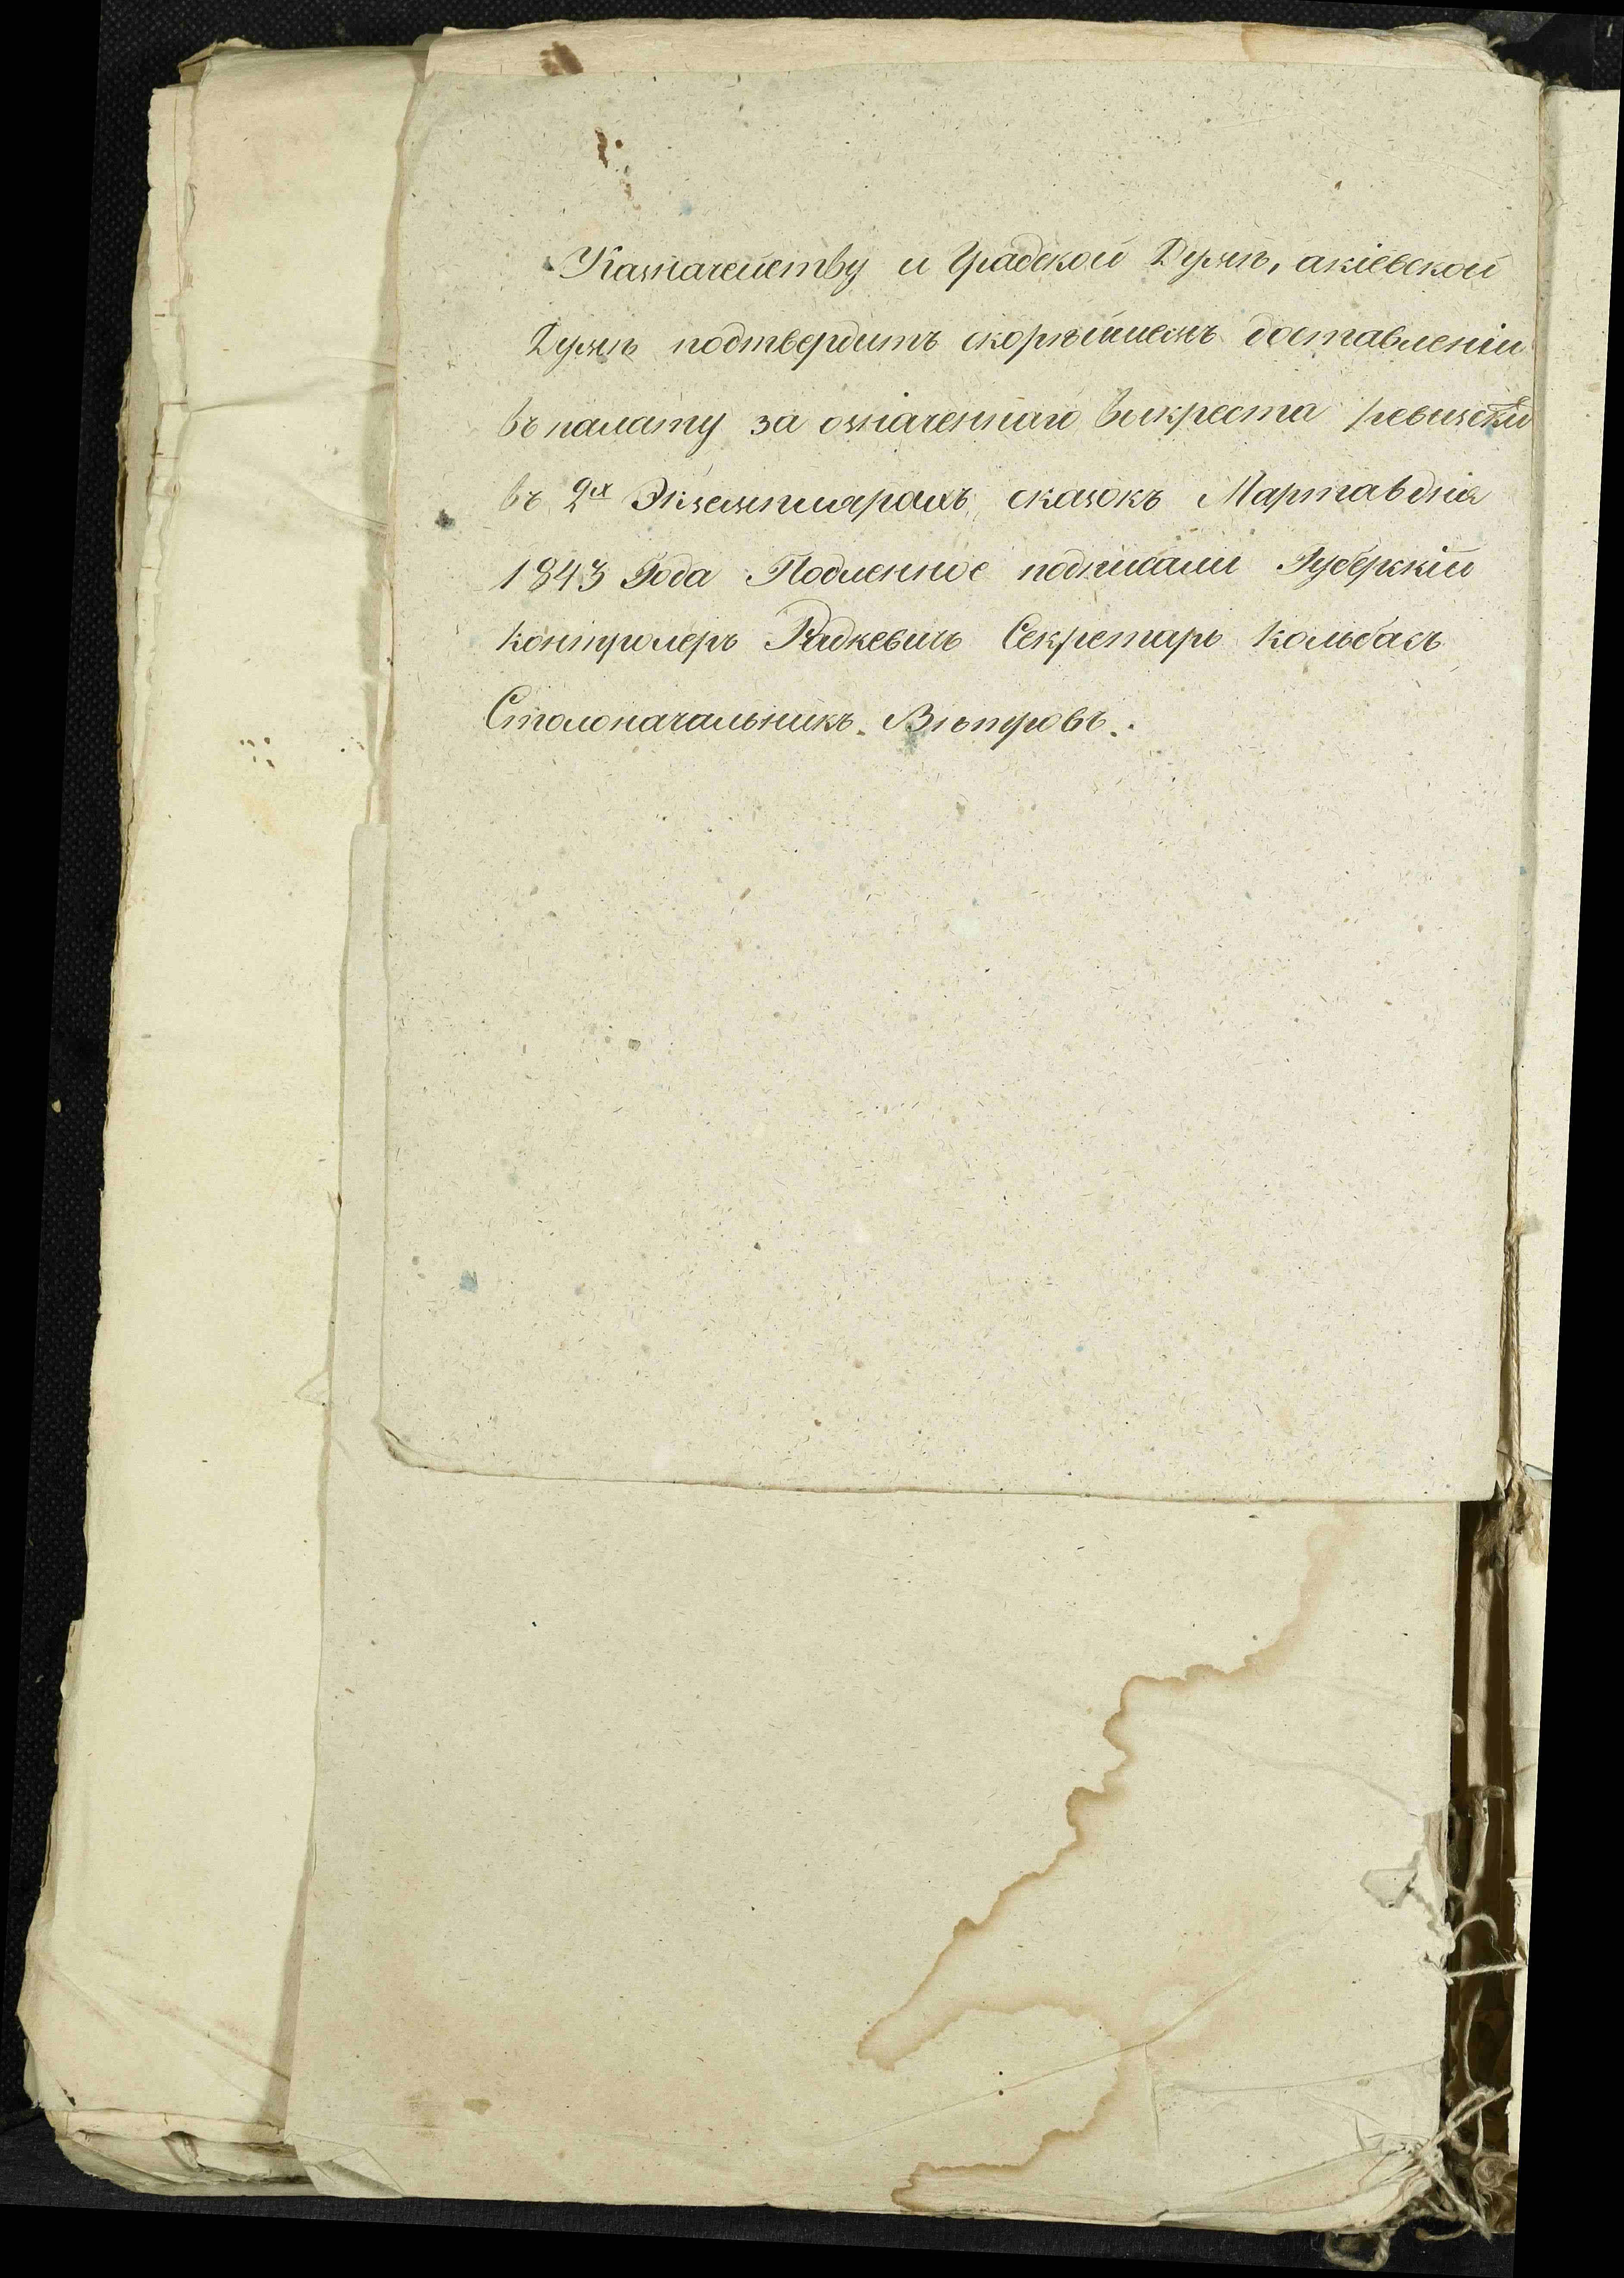 Казначейству и Градской Думѣ, акіевской
Думѣ подтвердитъ скорѣйшемъ доставленіи
въ палату за означеннаго Выкреста ревизски
въ 2х Экземплярахъ сказокъ Марта в дня
1843 Года Подленное подписали Губерскій
Контролеръ Радкевичъ Секретарь Кольбасъ
Столоначальникъ Вѣтровъ.